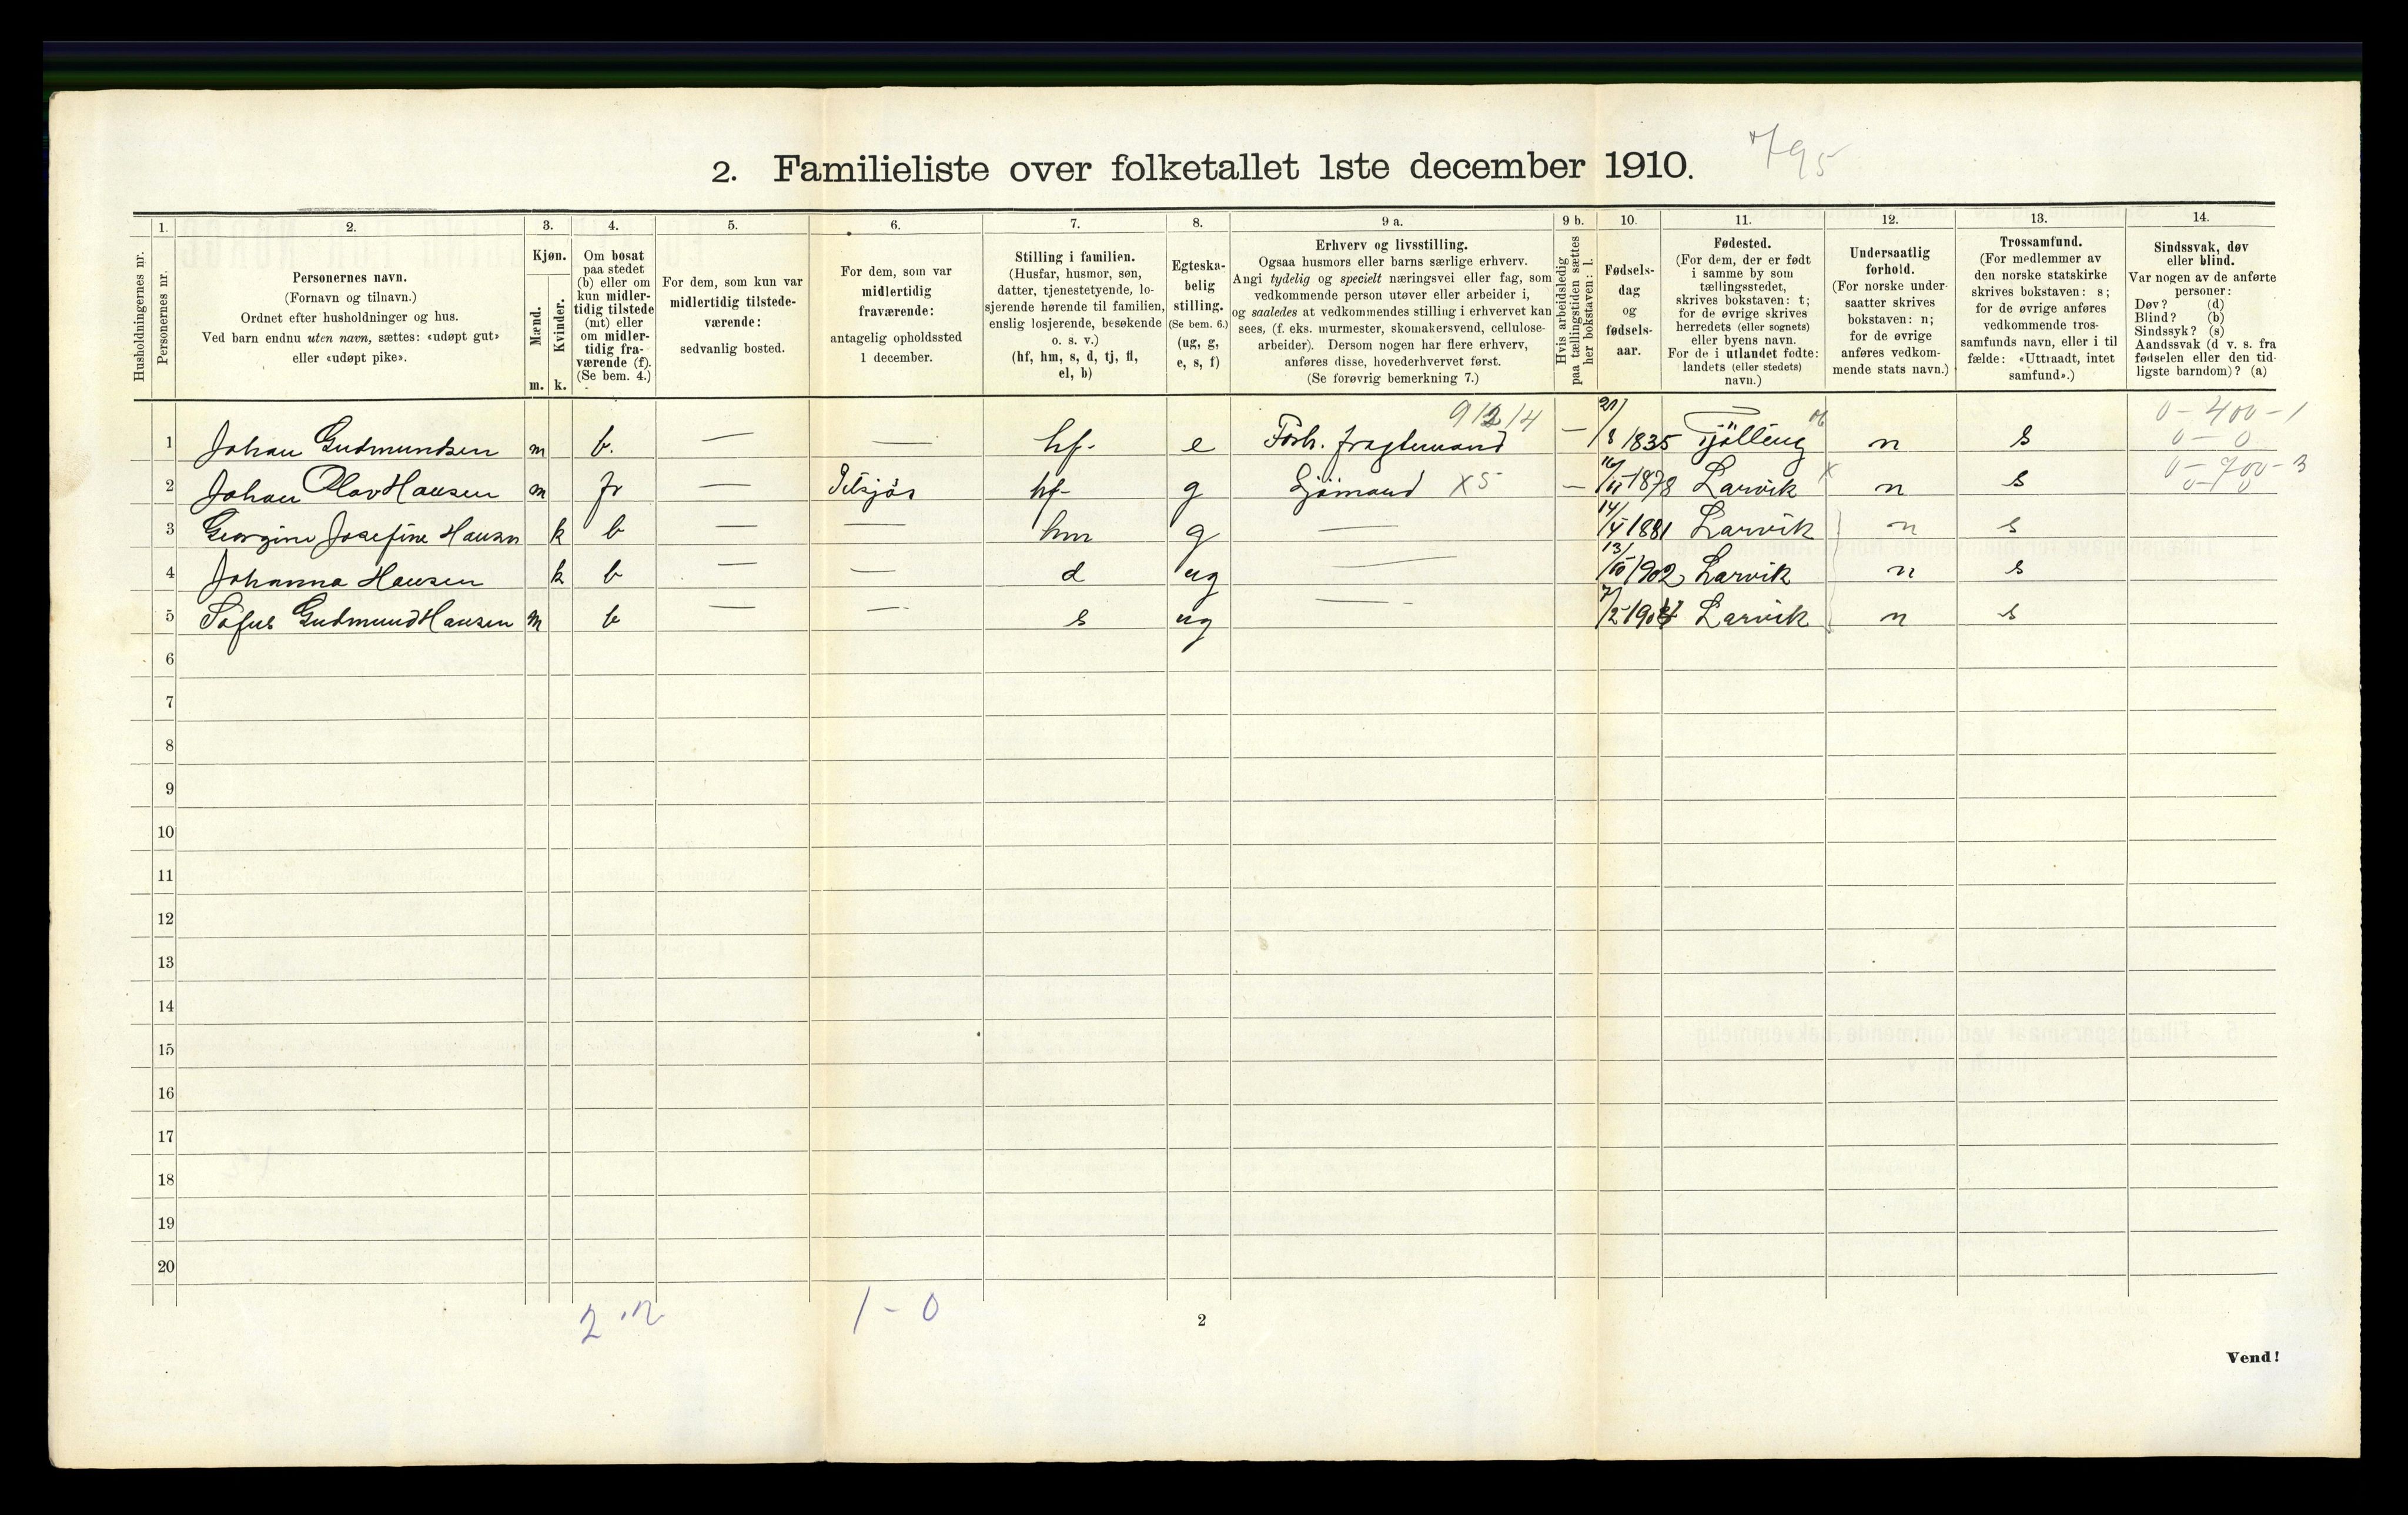 795
2. Familieliste over folketallet 1ste december 1910.
Husholdningernes nr.
1. Personernes nr.
2. Personernes navn.
(Fornavn og tilnavn.)
Ordnet efter husholdninger og hus.
Ved barn endnu uten navn, sættes: «udøpt gut»
eller «udøpt pike».
3. Kjøn.
Mænd. m.
Kvinder. k.
4. Om bosat
paa stedet
(b) eller om
kun midler-
tidig tilstede
(mt) eller
om midler-
tidig fra-
værende (f).
(Se bem. 4.)
5. For dem, som kun var
midlertidig tilstede-
værende:
sedvanlig bosted.
6. For dem, som var
midlertidig
fraværende:
antagelig opholdssted
1 december.
7. Stilling i familien.
(Husfar, husmor, søn,
datter, tjenestetyende, lo-
sjerende hørende til familien,
enslig losjerende, besøkende
o. s. v.)
(hf, hm, s, d, tj, fl,
el, b)
8. Egteska-
belig
stilling.
(Se bem. 6.)
(ug, g,
e, s, f)
9 a. Erhverv og livsstilling.
Ogsaa husmors eller barns særlige erhverv.
Angi tydelig og specielt næringsvei eller fag, som
vedkommende person utøver eller arbeider i,
og saaledes at vedkommendes stilling i erhvervet kan
sees, (f. eks. murmester, skomakersvend, cellulose-
arbeider). Dersom nogen har flere erhverv,
anføres disse, hovederhvervet først.
(Se forøvrig bemerkning 7.)
9 b. Hvis arbeidsledig
paa tællingstiden sættes
her bokstaven: l.
10. Fødsels-
dag
og
fødsels-
aar.
11. Fødested.
(For dem, der er født
i samme by som
tællingsstedet,
skrives bokstaven: t;
for de øvrige skrives
herredets (eller sognets)
eller byens navn.
For de i utlandet fødte:
landets (eller stedets)
navn.)
12. Undersaatlig
forhold.
(For norske under-
saatter skrives
bokstaven: n;
for de øvrige
anføres vedkom-
mende stats navn.)
13. Trossamfund.
(For medlemmer av
den norske statskirke
skrives bokstaven: s;
for de øvrige anføres
vedkommende tros-
samfunds navn, eller i til
fælde: «Uttraadt, intet
samfund».)
14. Sindssvak, døv
eller blind.
Var nogen av de anførte
personer:
Døv? (d)
Blind? (b)
Sindssyk? (s)
Aandssvak (d v. s. fra
fødselen eller den tid-
ligste barndom)? (a)
0 - 400 - 1
1 Johan Gudmundsen m b. — — hf- e Forh. fragtemand — 21/8 1835 Tjölling n s 0 - 0
0 - 700 - 3
2 Johan Olav Hansen m fr — Tilsjös hf- g Sjömand X5 — 16/11 1878 Larvik X n s 0 - 0
3 Georgine Josefine Hansen k b — — hm g — 14/4 1881 Larvik n s
4 Johanna Hansen k b — — d ug — 13/10 1902 Larvik n s
5 Sofus Gudmund Hansen m b — — s ug — 7/12 Larvik n s
6
7
8
9
10
11
12
13
14
15
16
17
18
19
20
1 - 0
2
Vend!